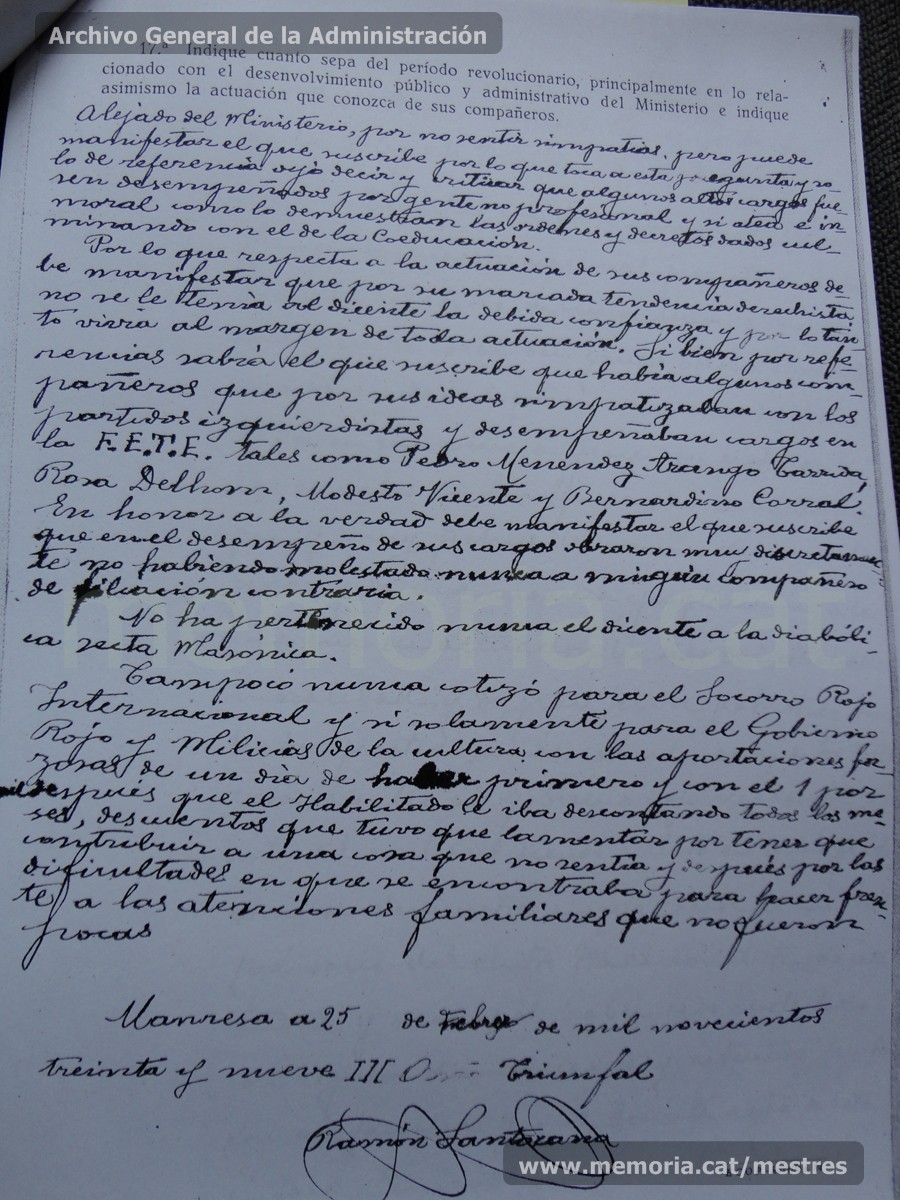 Archivo General de la Administración
17.ª Indique cuanto sepa del período revolucionario, principalmente en lo rela-
cionado con el desenvolvimiento público y administrativo del Ministerio e indique
asimismo la actuación que conozca de sus compañeros.
Alejado del Ministerio, por no sentir simpatías, pero puede
manifestar el que suscribe por lo que toca a esta pregunta y so
lo de referencia oyó decir y criticar que algunos altos cargos fue-
sen desempeñados por gente no profesional y si atea e in-
moral como lo demuestran las ordenes y decretos dados cul-
minando con el de la Coeducación.
Por lo que respecta a la actuación de sus compañeros de-
be manifestar que por su marcada tendencia derechista
no se le tenia al dicente la debida confianza y por lo tan-
to vivía al margen de toda actuación. Si bien por refe-
rencias sabía el que suscribe que había algunos com-
pañeros que por sus ideas simpatizaban con los
partidos izquierdistas y desempeñaban cargos en
la F.E.T.E. tales como Pedro Menéndez Arango Tarrida,
Rosa Delhom, Modesto Vicente y Bernardino Corral.
En honor a la verdad debe manifestar el que suscribe
que en el desempeño de sus cargos obraron muy discretamen-
te no habiendo molestado nunca a ningún compañero
de filiación contraria.
No ha pertenecido nunca el dicente a la diabóli-
ca secta Masónica.
Tampoco nunca cotizó para el Socorro Rojo
Internacional y si solamente para el Gobierno
Rojo y Milicias de la cultura con las aportaciones for-
zosas de un día de haber primero y con el 1 por
después que el Habilitado le iba descontando todos los me-
ses, descuentos que tuvo que lamentar por tener que
contribuir a una cosa que no sentía y después por las
dificultades en que se encontraba para hacer fren-
te a las atenciones familiares que no fueron
pocas
Manresa a 25 de Febrero de mil novecientos
treinta y nueve III Triunfal
Ramón Santacana
memoria.cat
www.memoria.cat/mestres